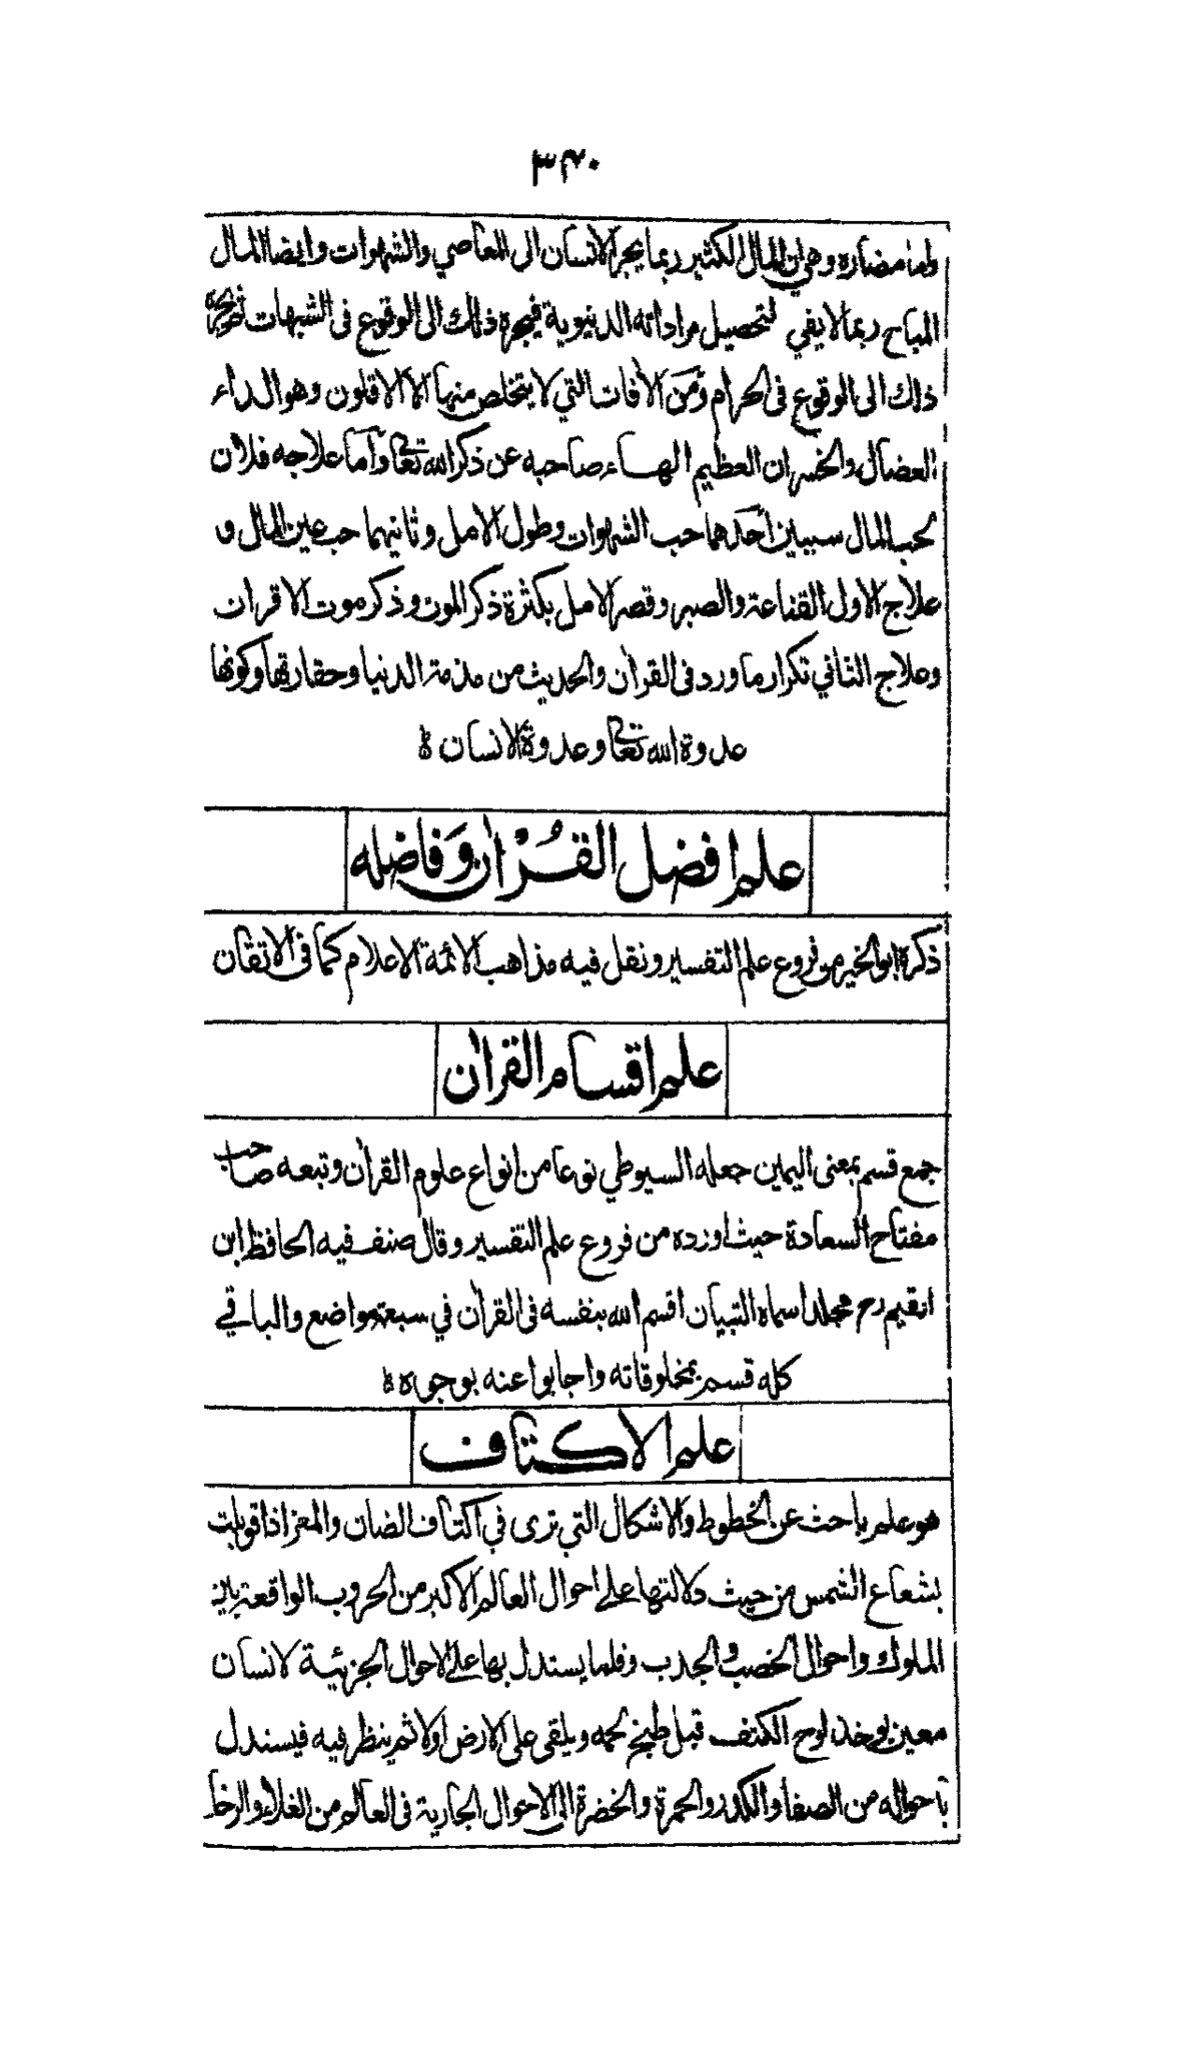 ٣٤٠
واما مضاره وهي ان المال الكثير ربما يجر الانسان الى المعاصي والشهوات وايضا المال
المباح ربما لا يفي لتحصيل مراداته الدنيوية فيجره ذلك الى الوقوع فى الشبهات ثم يجره
ذلك الى الوقوع فى الحرام ومن الآفات التي لا يتخلص منها الا الاقلون وهو الداء
العضال والخسران العظيم الهاء صاحبه عن ذكر الله تعالى وأما علاجه فلان
لحب المال سببين أحدهما حب الشهوات وطول الامل وثانيهما حب عين المال و
علاج الاول القناعة والصبر وقصر الامل بكثرة ذكر الموت وذكر موت الاقران
وعلاج الثاني تكرار ما ورد فى القرآن والحديث من مذمة الدنيا وحقارتها وكونها
عدوة الله تعالى وعدوة الانسان ه
علم افضل القُرْاٰن وَفاضله
ذكره ابو الخير من فروع علم التفسير ونقل فيه مذاهب الائمة الاعلام كما فى الاتقان
علم اقسام القراٰن
جمع قسم بمعنى اليمين جعله السيوطي نوعا من انواع علوم القراٰن وتبعه صاحب
مفتاح السعادة حيث اورده من فروع علم التفسير وقال صنف فيه الحافظ ابن
القيم رح مجلدا سماه التبيان اقسم الله بنفسه فى القراٰن في سبعة مواضع والباقي
كله قسم بمخلوقاته واجابوا عنه بوجوه ه
علم الاكتاف
هو علم باحث عن الخطوط والاشكال التي ترى في اكتاف الضان والمعز اذا قوبلت
بشعاع الشمس من حيث دلالتها على احوال العالم الاكبر من الحروب الواقعة بين
الملوك واحوال الخصب والجدب وقلما يستدل بها على الاحوال الجزئية لانسان
معين يوخذ لوح الكتف قبل طبخ لحمه ويلقى على الارض اولا ثم ينظر فيه فيستدل
باحواله من الصفا والكدر والحمرة والخضرة الى الاحوال الجارية فى العالم من الغلاء والرخا